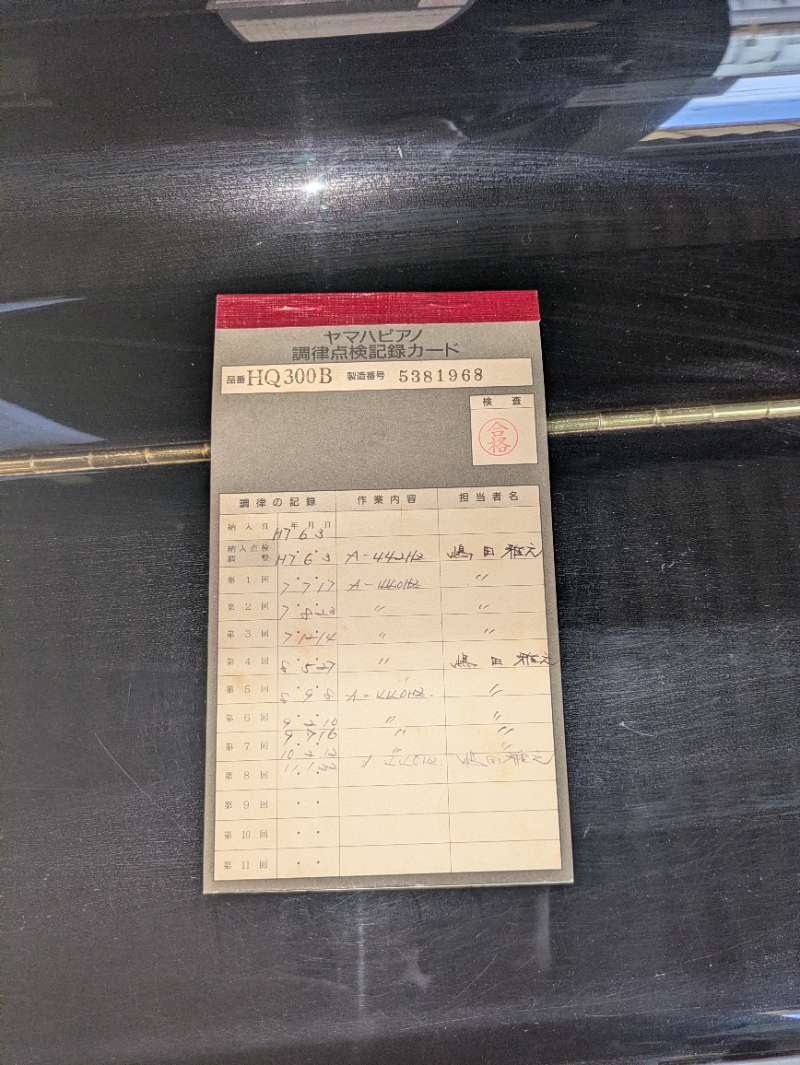 ヤマハピアノ
調律点検記録カード
品番 HQ300B 製造番号 5381968
検査
合格
調律の記録 作業内容 担当者名
納入日 年月日 H7 6 3
納入点検調整 H7・6・3 A-442Hz 嶋田雅元
第1回 7・7・17 A-440Hz 〃
第2回 7・8・23 〃 〃
第3回 7・12・14 〃 〃
第4回 8・5・27 〃 嶋田雅元
第5回 8・9・8 A-440Hz. 〃
第6回 9・2・10 〃 〃
9 7 16 〃 〃
第7回 10・2・12 〃 〃
第8回 11・1・22 A 440Hz 嶋田雅元
第9回 ・・
第10回 ・・
第11回 ・・